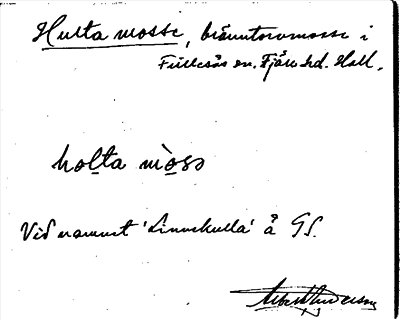 Hulta mosse, bränntorvmosse i
Fjärås sn. Fjäre hd. Hall.
holta mòss
Vid namnet 'Linnekulla' å GS.